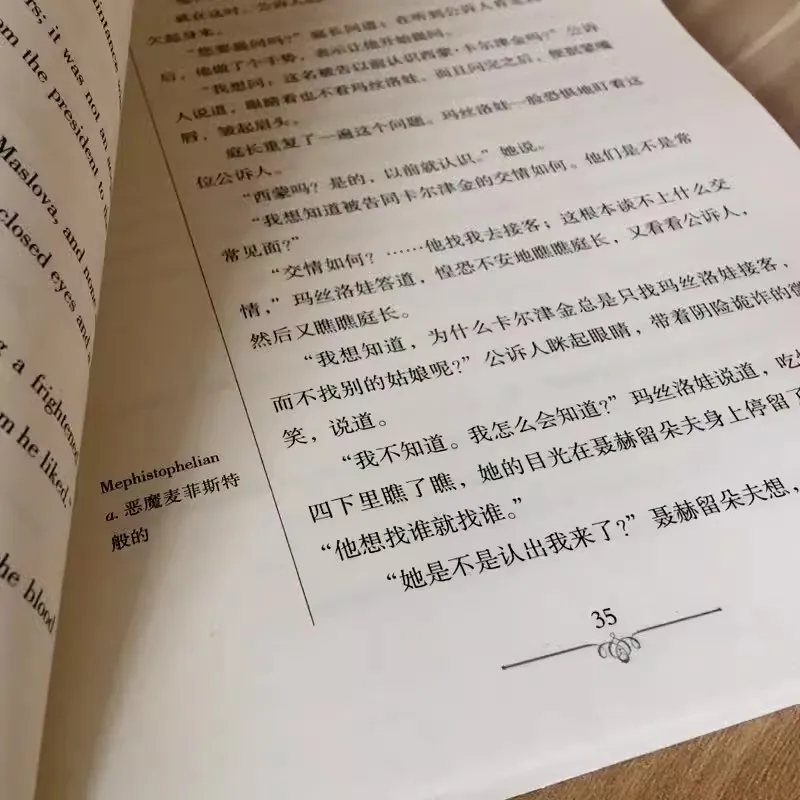 rs; it was not an
om the president to
Maslova, and none
closed eyes and
g a frightened
m he liked,"
he blood
就在这时，公诉人
欠起身来。
“您要提问吗？”庭长问道；在听到公诉人肯定
后，他做了个手势，表示让他开始提问。
“我想问：这名被告以前认识西蒙·卡尔津金吗？”公诉
人说道，眼睛看也不看玛丝洛娃。而且问完之后，便抿紧嘴
唇，皱起眉头。
庭长重复了一遍这个问题。玛丝洛娃一脸恐惧地盯着这
位公诉人。
“西蒙吗？是的，以前就认识。”她说。
“我想知道被告同卡尔津金的交情如何。他们是不是常
常见面？”
“交情如何？……他找我去接客；这根本谈不上什么交
情，”玛丝洛娃答道，惶恐不安地瞧瞧庭长，又看看公诉人，
然后又瞧瞧庭长。
“我想知道，为什么卡尔津金总是只找玛丝洛娃接客，
而不找别的姑娘呢？”公诉人眯起眼睛，带着阴险诡诈的微
笑，说道。
“我不知道。我怎么会知道？”玛丝洛娃说道，吃
四下里瞧了瞧，她的目光在聂赫留朵夫身上停留了
“他想找谁就找谁。”
“她是不是认出我来了？”聂赫留朵夫想，
Mephistophelian
a. 恶魔麦菲斯特
般的
35